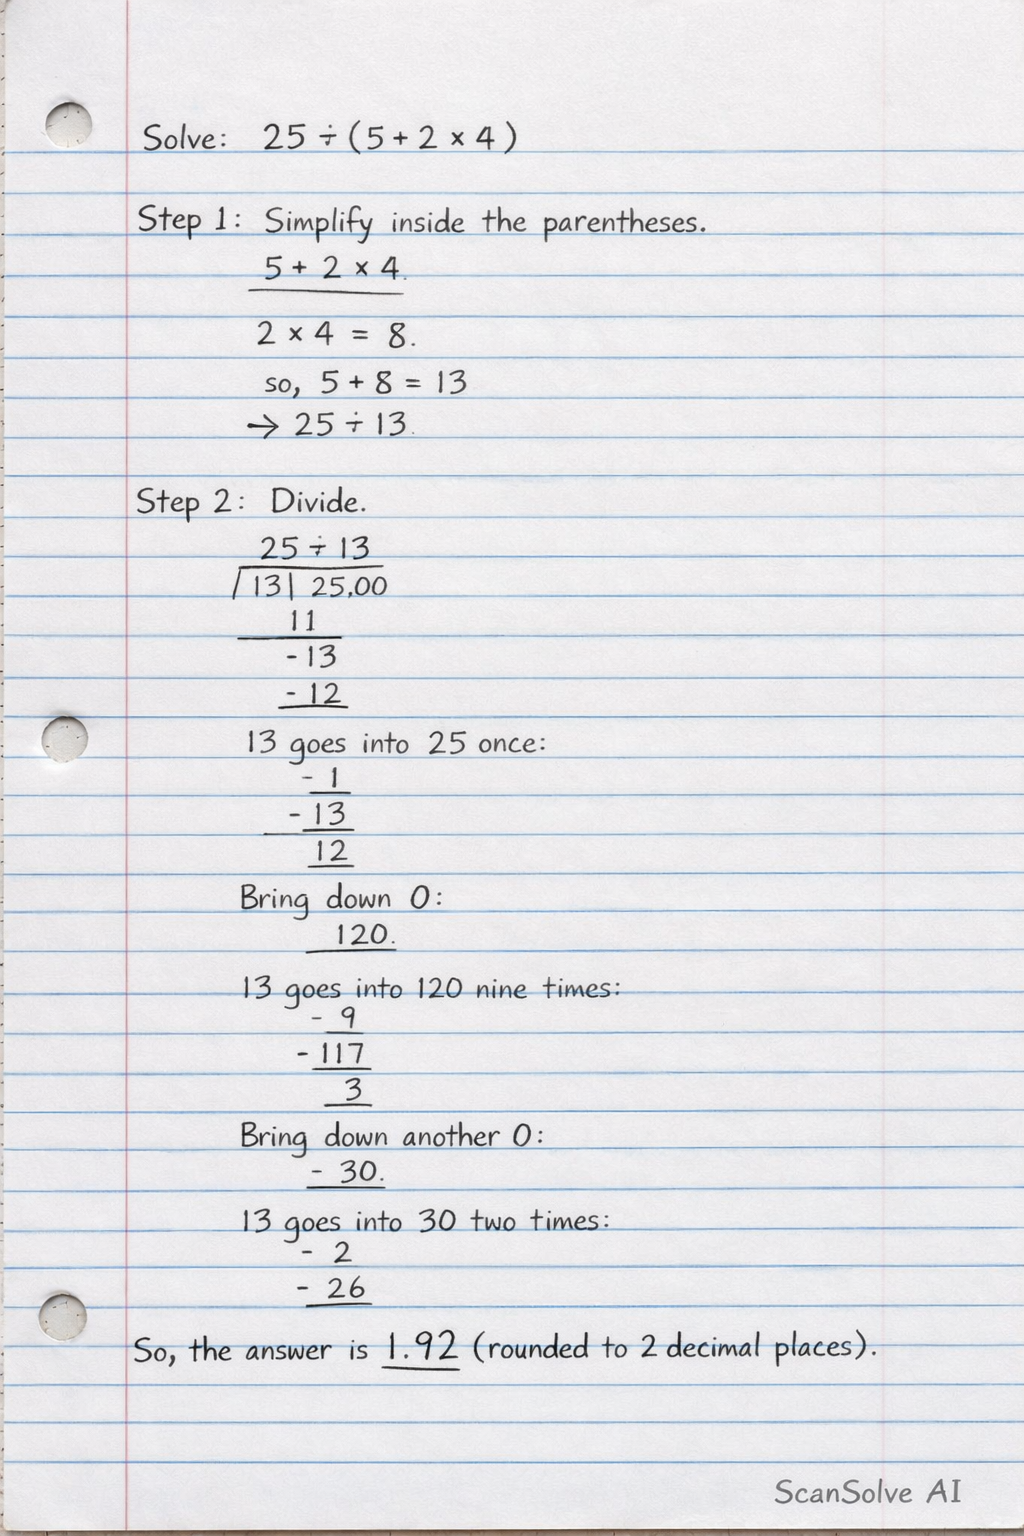 Solve: 25 ÷ (5 + 2 × 4)
Step 1: Simplify inside the parentheses.
5 + 2 × 4.
2 × 4 = 8.
so, 5 + 8 = 13
→ 25 ÷ 13.
Step 2: Divide.
25 ÷ 13
13| 25.00
11
-13
- 12
13 goes into 25 once:
- 1
- 13
12
Bring down 0:
120.
13 goes into 120 nine times:
- 9
- 117
3
Bring down another 0:
- 30.
13 goes into 30 two times:
- 2
- 26
So, the answer is 1.92 (rounded to 2 decimal places).
ScanSolve AI